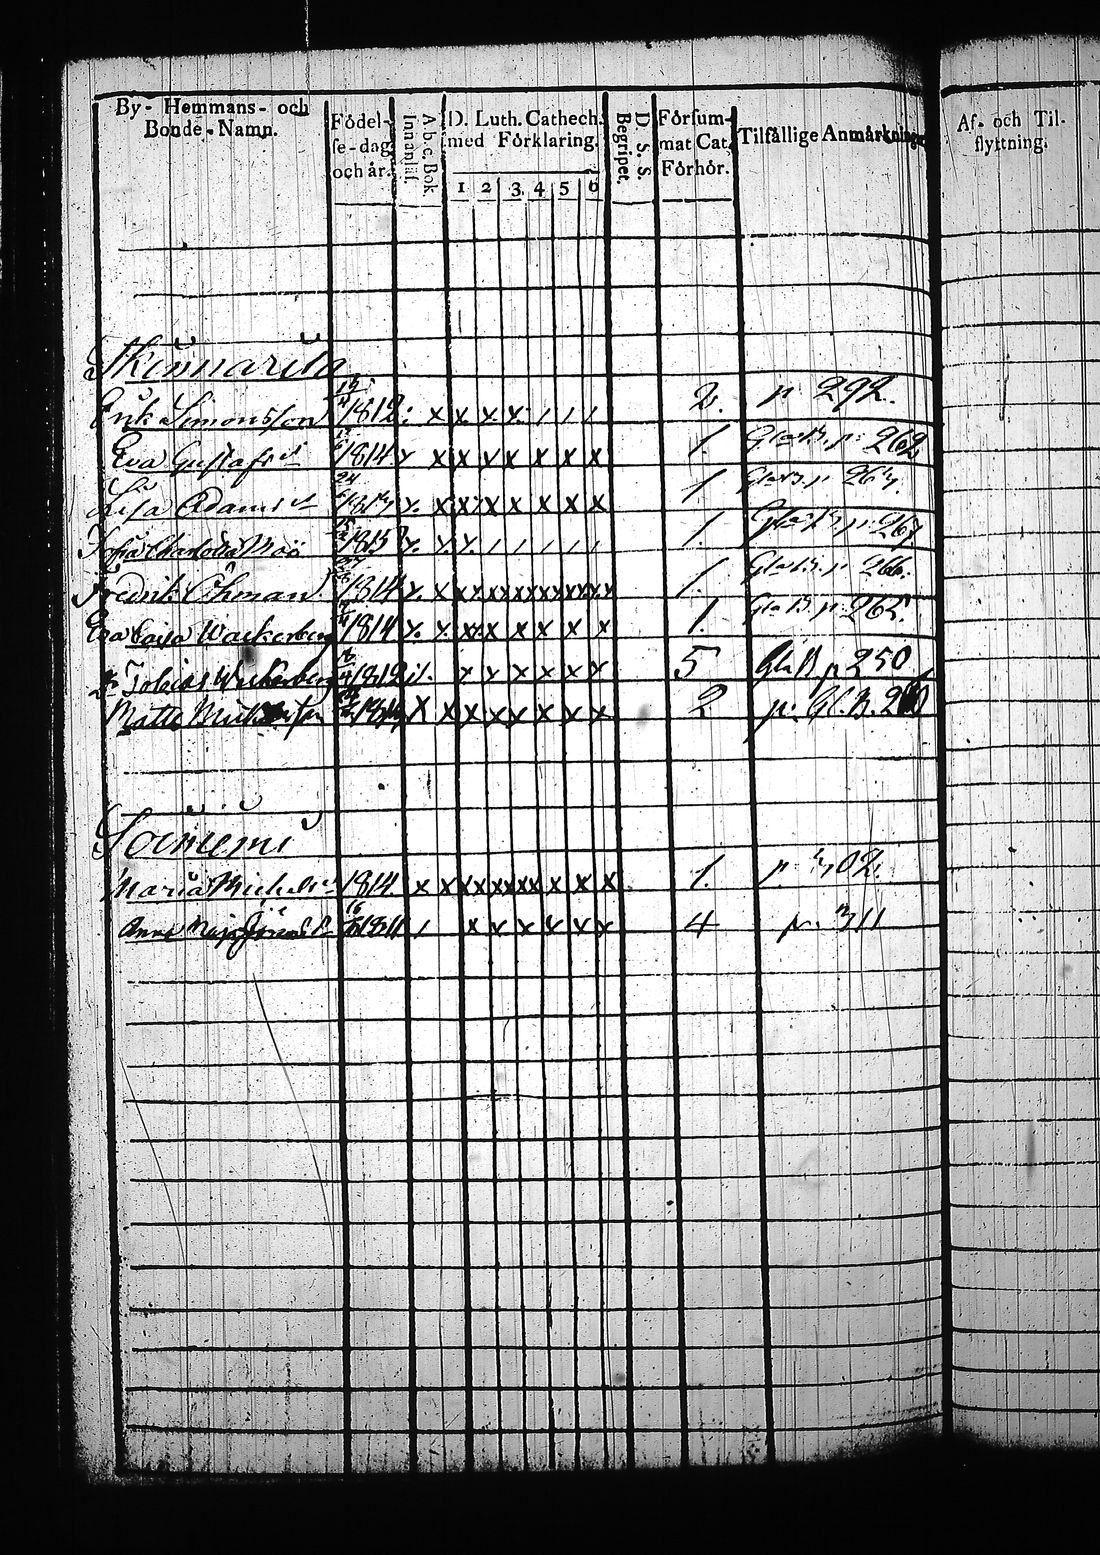 By- Hemmans- och Bonde-Namn.
Födelse-dag och år.
A b c Bok. Innanläs.
D. Luth. Cathech. med Förklaring.
1 2 3 4 5 6
D. S. S. Begripet.
Försummat Cat. Förhör.
Tilfällige Anmärkninga
Af- och Tilflyttning.
Skinnarila
Erik Simonsson 1812 x x x x / / / 2. p 292.
Eva Gustafs dr 1814 x x x x x x x 1. p. 262
Lisa Adams dr x x x x x x x 1 p
Sofia Charlotta 1815 x x / / / / / 1. p. 267
Fredrik Öhman 1814 x x x x x x x x x x x x x 1. p 266.
Eva Caisa Wackerberg 1814 x x x x x x x x 1. p. 265.
Tobias Wackerberg 1812 x x x x x x 5 Gl. B p 250
Matts 1814 x x x x x x x x 2 p. Gl. B.
Soiniemi
Maria Michels dr 1814 x x x x x x x x x x 1. p. 302.
Anna Maja 1811 / x x x x x x 4 p. 311